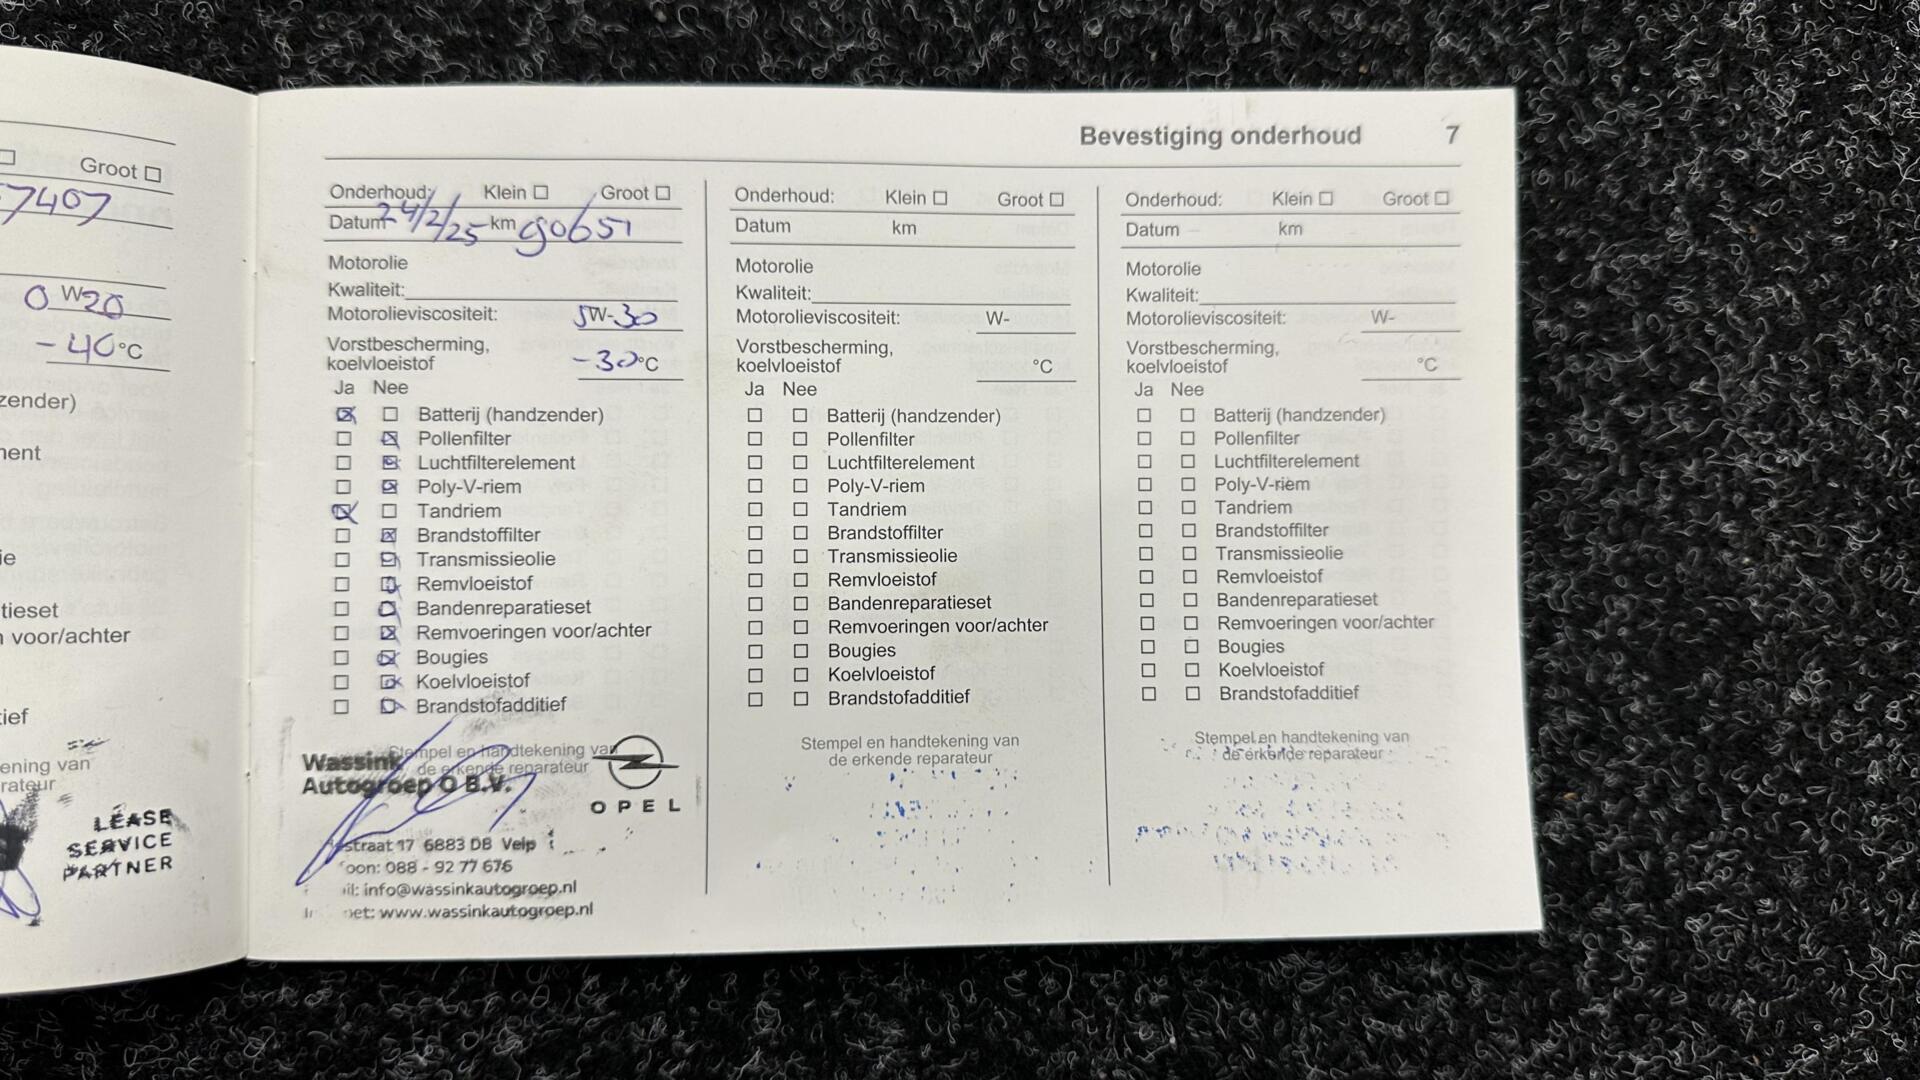 Groot
7407
0 W20
-40 °C
zender)
nent
ie
tieset
voor/achter
tief
ening van
rateur
LEASE
SERVICE
PARTNER
Bevestiging onderhoud 7
Onderhoud: Klein Groot
Datum 24/2/25 km 90651
Motorolie
Kwaliteit:
Motorolieviscositeit: 5W-30
Vorstbescherming,
koelvloeistof -30°C
Ja Nee
Batterij (handzender)
Pollenfilter
Luchtfilterelement
Poly-V-riem
Tandriem
Brandstoffilter
Transmissieolie
Remvloeistof
Bandenreparatieset
Remvoeringen voor/achter
Bougies
Koelvloeistof
Brandstofadditief
Stempel en handtekening van
de erkende reparateur
Wassink
Autogroep O B.V.
OPEL
straat 17 6883 DB Velp
oon: 088 - 92 77 676
il: info@wassinkautogroep.nl
net: www.wassinkautogroep.nl
Onderhoud: Klein Groot
Datum km
Motorolie
Kwaliteit:
Motorolieviscositeit: W-
Vorstbescherming,
koelvloeistof °C
Ja Nee
Batterij (handzender)
Pollenfilter
Luchtfilterelement
Poly-V-riem
Tandriem
Brandstoffilter
Transmissieolie
Remvloeistof
Bandenreparatieset
Remvoeringen voor/achter
Bougies
Koelvloeistof
Brandstofadditief
Stempel en handtekening van
de erkende reparateur
Onderhoud: Klein Groot
Datum km
Motorolie
Kwaliteit:
Motorolieviscositeit: W-
Vorstbescherming,
koelvloeistof °C
Ja Nee
Batterij (handzender)
Pollenfilter
Luchtfilterelement
Poly-V-riem
Tandriem
Brandstoffilter
Transmissieolie
Remvloeistof
Bandenreparatieset
Remvoeringen voor/achter
Bougies
Koelvloeistof
Brandstofadditief
Stempel en handtekening van
de erkende reparateur